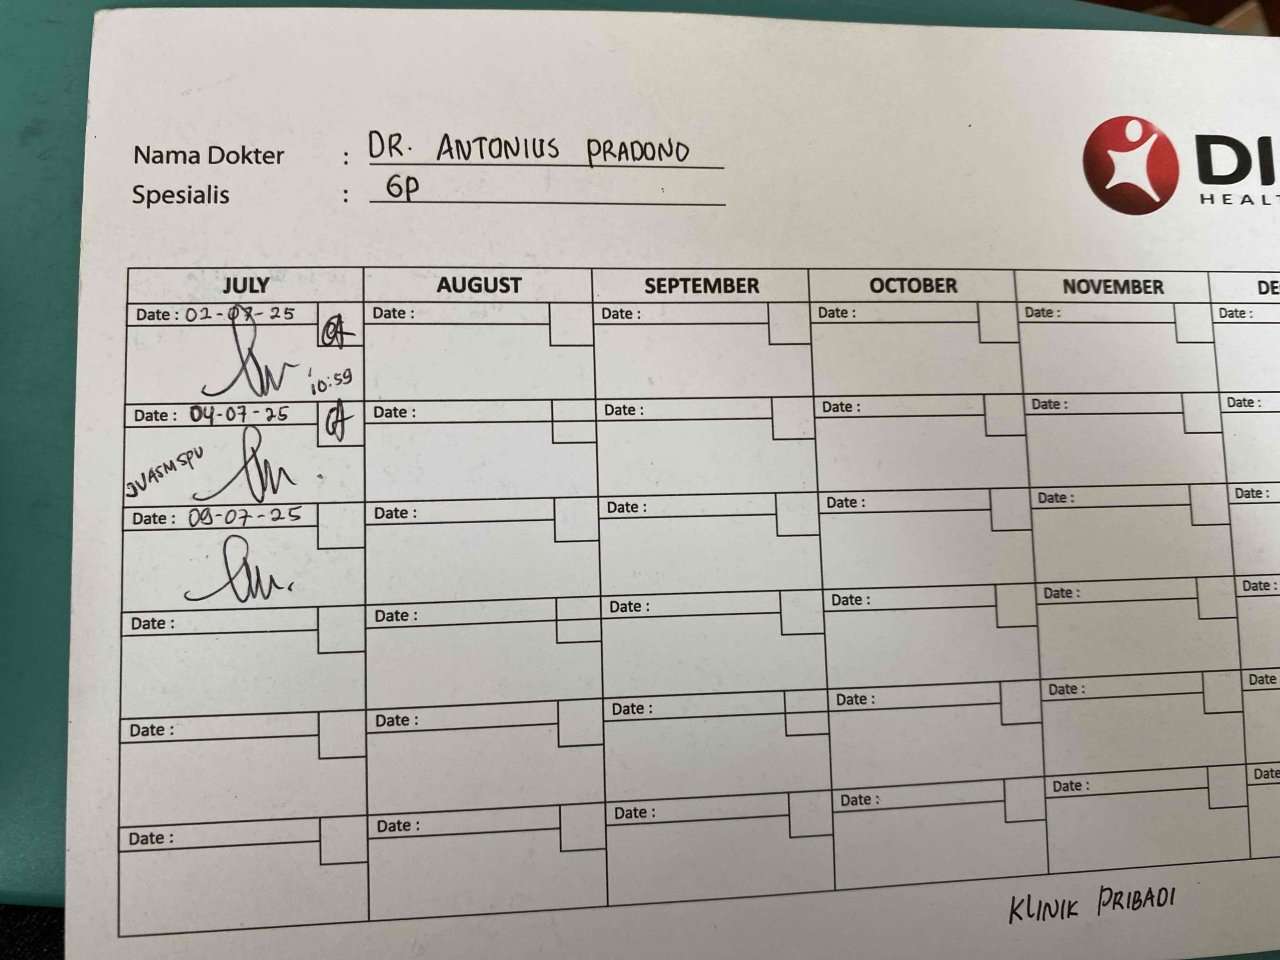 Nama Dokter : DR. ANTONIUS PRADONO
Spesialis : GP
DI
HEALT
JULY AUGUST SEPTEMBER OCTOBER NOVEMBER DE
Date : 02-07-25 Date : Date : Date : Date : Date :
10:59
Date : 04-07-25 Date : Date : Date : Date : Date :
JVASMSPV
Date : 09-07-25 Date : Date : Date : Date : Date :
Date : Date : Date : Date : Date : Date :
Date : Date : Date : Date : Date : Date
Date : Date : Date : Date : Date : Date
KLINIK PRIBADI